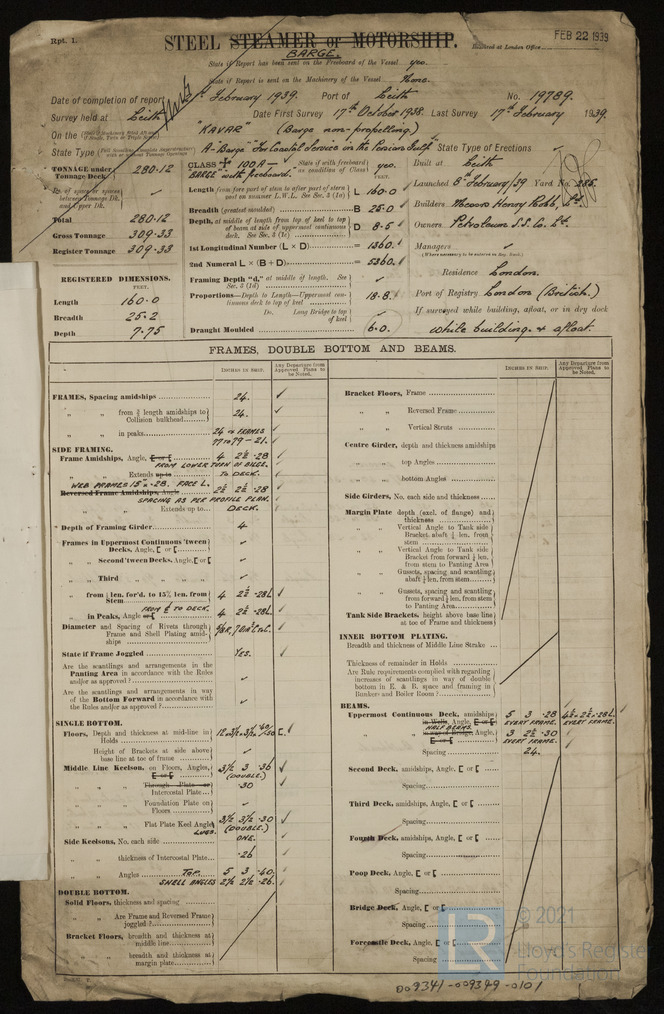 Rpt. 1.
STEEL STEAMER or MOTORSHIP.
BARGE.
Received at London Office
FEB 22 1939
State if Report has been sent on the Freeboard of the Vessel yes.
State if Report is sent on the Machinery of the Vessel None.
Date of completion of report February 1939. Port of Leith No. 19789.
Survey held at Leith Date First Survey 17th October 1938. Last Survey 17th February 1939.
On the "KAVAR" (Barge non-propelling)
State Type A-Barge "For Coastal Service in the Persian Gulf" State Type of Erections
TONNAGE under Tonnage Deck 280.12
Total 280.12
Gross Tonnage 309.33
Register Tonnage 309.33
REGISTERED DIMENSIONS.
FEET.
Length 160.0
Breadth 25.2
Depth 7.75
CLASS 100A- State if with freeboard as condition of Class yes.
BARGE "with freeboard"
FEET.
Length from fore part of stem to after part of stern post on summer L.W.L. See Sec. 3 (1a) L 160.0
Breadth (greatest moulded) B 25.0
Depth, at middle of length from top of keel to top of beam at side of uppermost continuous deck. See Sec. 3 (1c) D 8.5
1st Longitudinal Number (L × D) = 1360.
2nd Numeral L × (B + D) = 5360.
Framing Depth "d," at middle of length. See Sec. 3 (1d)
Proportions—Depth to Length—Uppermost continuous deck to top of keel 18.8
Do. Long Bridge to top of keel
Draught Moulded 6.0
Built at Leith
Launched 8th February/39 Yard No. 285.
Builders Messrs Henry Robb, Ltd
Owners Petroleum S.S. Co. Ltd.
Managers
(Where necessary to be entered in Reg. Book.)
Residence London.
Port of Registry London (British.)
If surveyed while building, afloat, or in dry dock
while building & afloat.
FRAMES, DOUBLE BOTTOM AND BEAMS.
INCHES IN SHIP.
Any Departure from Approved Plans to be Noted.
FRAMES, Spacing amidships 24.
„ „ from ⅗ length amidships to Collision bulkhead 24.
„ „ in peaks 24 to FRAMES
77 to 79 - 21.
SIDE FRAMING.
Frame Amidships, Angle, [ or [ 4 2½ .28
FROM LOWER TURN OF BILGE.
„ „ Extends up to TO DECK.
WEB FRAMES 15" × .28. FACE L.
Reversed Frame Amidships, Angle 2½ 2½ .28
SPACING AS PER PROFILE PLAN.
„ „ Extends up to DECK.
Depth of Framing Girder 4
Frames in Uppermost Continuous 'tween Decks, Angle, [ or [
„ „ Second 'tween Decks, Angle, [ or [
„ „ Third „ „ „ „
„ „ from ½ len. for'd. to 15% len. from Stem 4 2½ .28L
FROM ℄ TO DECK.
„ in Peaks, Angle or [ 4 2½ .28L
Diameter and Spacing of Rivets through Frame and Shell Plating amidships
State if Frame Joggled YES.
Are the scantlings and arrangements in the Panting Area in accordance with the Rules and/or as approved?
Are the scantlings and arrangements in way of the Bottom Forward in accordance with the Rules and/or as approved?
SINGLE BOTTOM.
Floors, Depth and thickness at mid-line in Holds
Height of Brackets at side above base line at toe of frame
Middle Line Keelson, on Floors, Angles, [ or [ 3½ 3 .36
(DOUBLE.)
„ „ Through Plate or Intercostal Plate .30
„ „ Foundation Plate on Floors
„ „ Flat Plate Keel Angles 3½ 3½ .30
LUGS. (DOUBLE.)
Side Keelsons, No. each side ONE.
„ „ thickness of Intercostal Plate .26
„ „ Angles TOP. 5 3 .40
SHELL ANGLES 2½ 2½ .26.
DOUBLE BOTTOM.
Solid Floors, thickness and spacing
„ „ Are Frame and Reversed Frame joggled?
Bracket Floors, breadth and thickness at middle line
„ „ breadth and thickness at margin plate
INCHES IN SHIP.
Any Departure from Approved Plans to be Noted.
Bracket Floors, Frame
„ „ Reversed Frame
„ „ Vertical Struts
Centre Girder, depth and thickness amidships
„ „ top Angles
„ „ bottom Angles
Side Girders, No. each side and thickness
Margin Plate depth (excl. of flange) and thickness
„ „ Vertical Angle to Tank side Bracket abaft ¼ len. from stem
„ „ Vertical Angle to Tank side Bracket from forward ¼ len. from stem to Panting Area
„ „ Gussets, spacing and scantling abaft ¼ len. from stem
„ „ Gussets, spacing and scantling from forward ¼ len. from stem to Panting Area
Tank Side Brackets, height above base line at toe of Frame and thickness
INNER BOTTOM PLATING.
Breadth and thickness of Middle Line Strake
Thickness of remainder in Holds
Are Rule requirements complied with regarding increases of scantlings in way of double bottom in E. & B. space and framing in Bunkers and Boiler Room?
BEAMS.
Uppermost Continuous Deck, amidships 5 3 .28 4½ × 2½ × .28L.
in Wells, Angle, [ or [ EVERY FRAME. EVERY FRAME.
HALF BEAMS.
„ „ in way of Bridge, Angle, [ or [ 3 2½ .30
EVERY FRAME.
Spacing 24.
Second Deck, amidships, Angle, [ or [
Spacing
Third Deck, amidships, Angle, [ or [
Spacing
Fourth Deck, amidships, Angle, [ or [
Spacing
Poop Deck, Angle, [ or [
Spacing
Bridge Deck, Angle, [ or [
Spacing
Forecastle Deck, Angle, [ or [
Spacing
LR
© 2021
Lloyd's Register
Foundation
009341-009349-0101